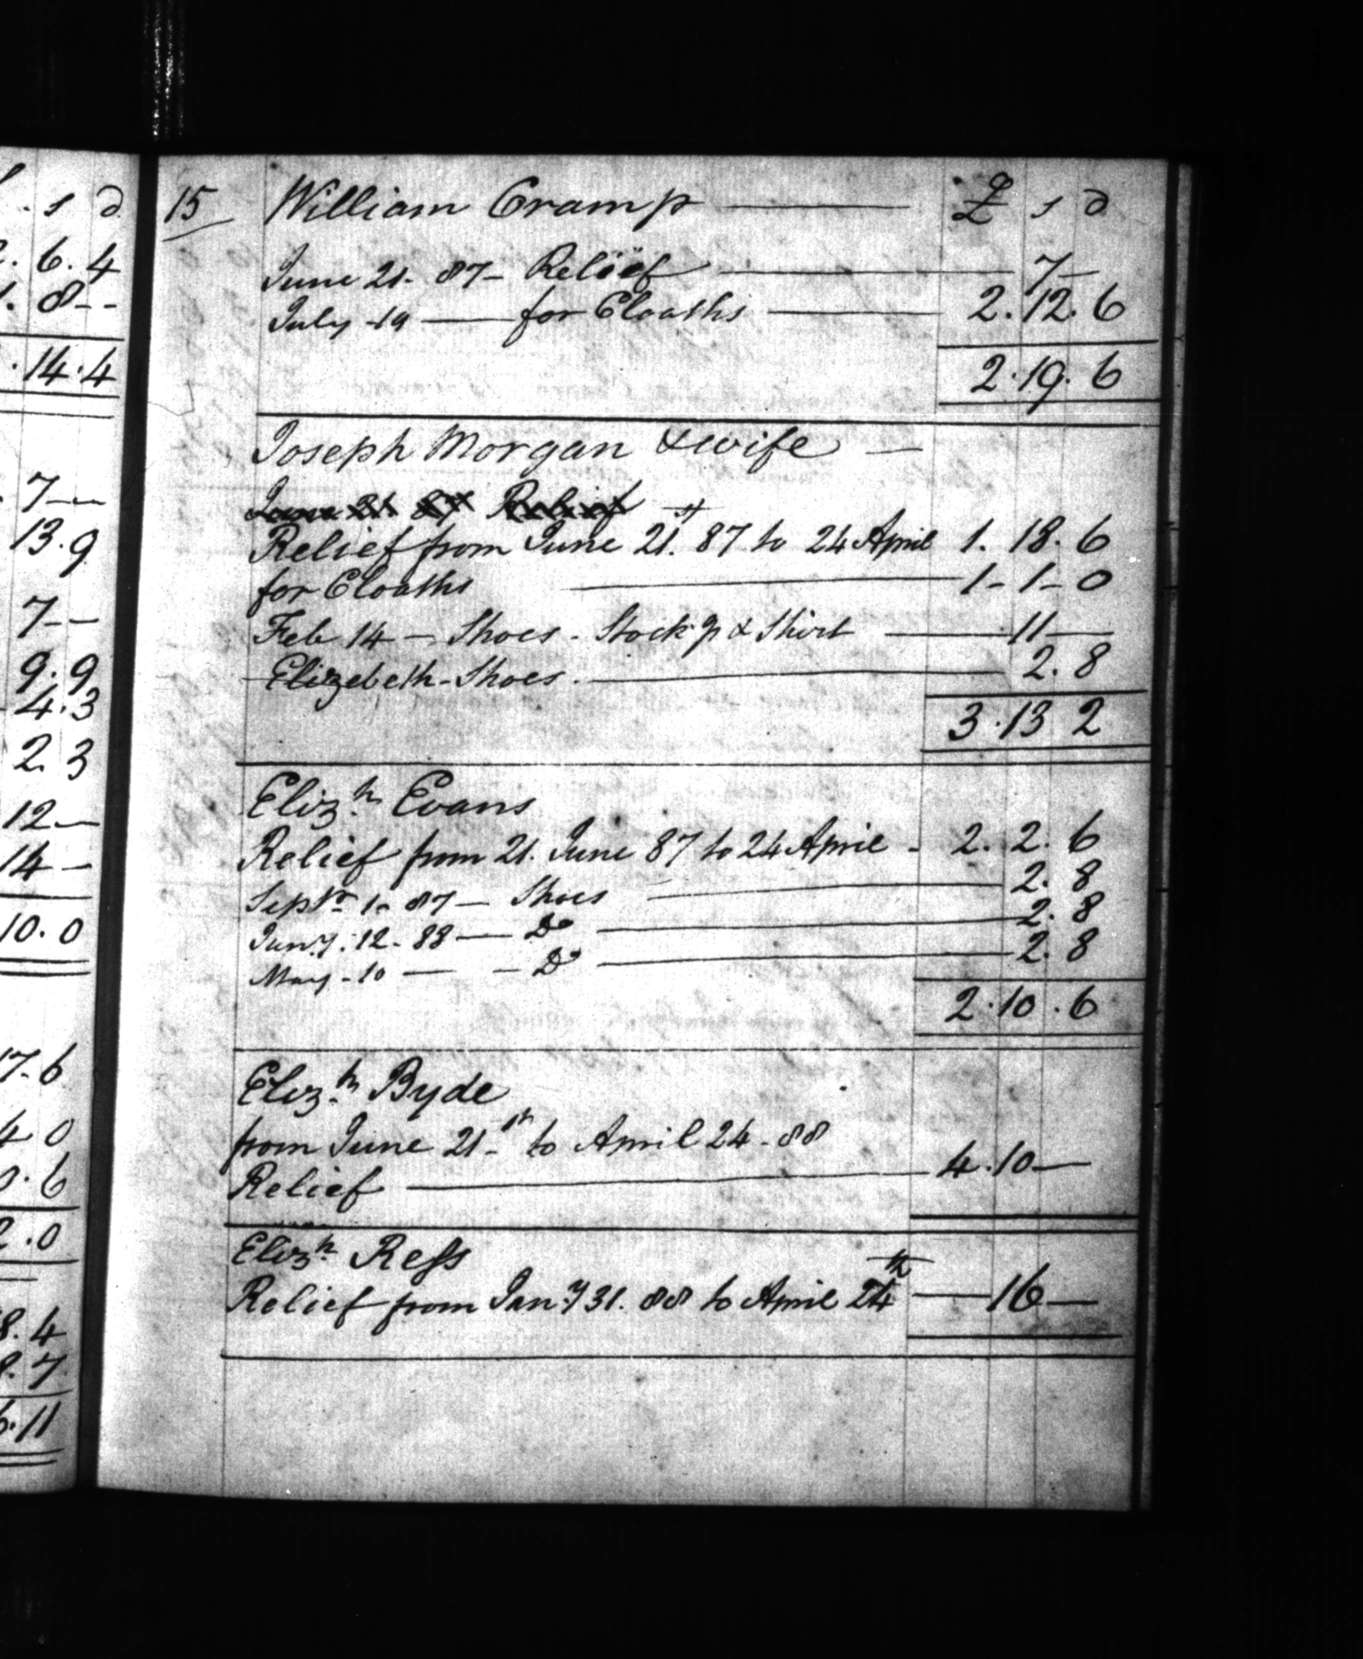 s d
6.4
8--
.14.4
7--
13.9
7--
9.9
4.3
2.3
12--
14-
10.0
17.6
4 0
0.6
2.0
8.4
8.7
6.11
15 William Cramp — £ s d
June 21. 87- Relief — 7-
July 19 — for Cloaths — 2.12.6
2.19.6
Joseph Morgan & wife —
June 21 87 Relief
Relief from June 21.st 87 to 24 April 1.18.6
for Cloaths — 1-1-0
Feb 14 - Shoes - Stockgs & Shirt — 11 —
Elizabeth - Shoes. — 2.8
3.13 2
Eliz.h Evans
Relief from 21. June 87 to 24 April - 2.2.6
Septr 1. 87 — Shoes — 2.8
Jany. 12. 88 — Do — 2.8
May - 10 — - Do — 2.8
2.10.6
Eliz.h Byde
from June 21-th to April 24-88
Relief — 4.10 —
Eliz.h Refs
Relief from Jany 31. 88 to April 24th — 16 —